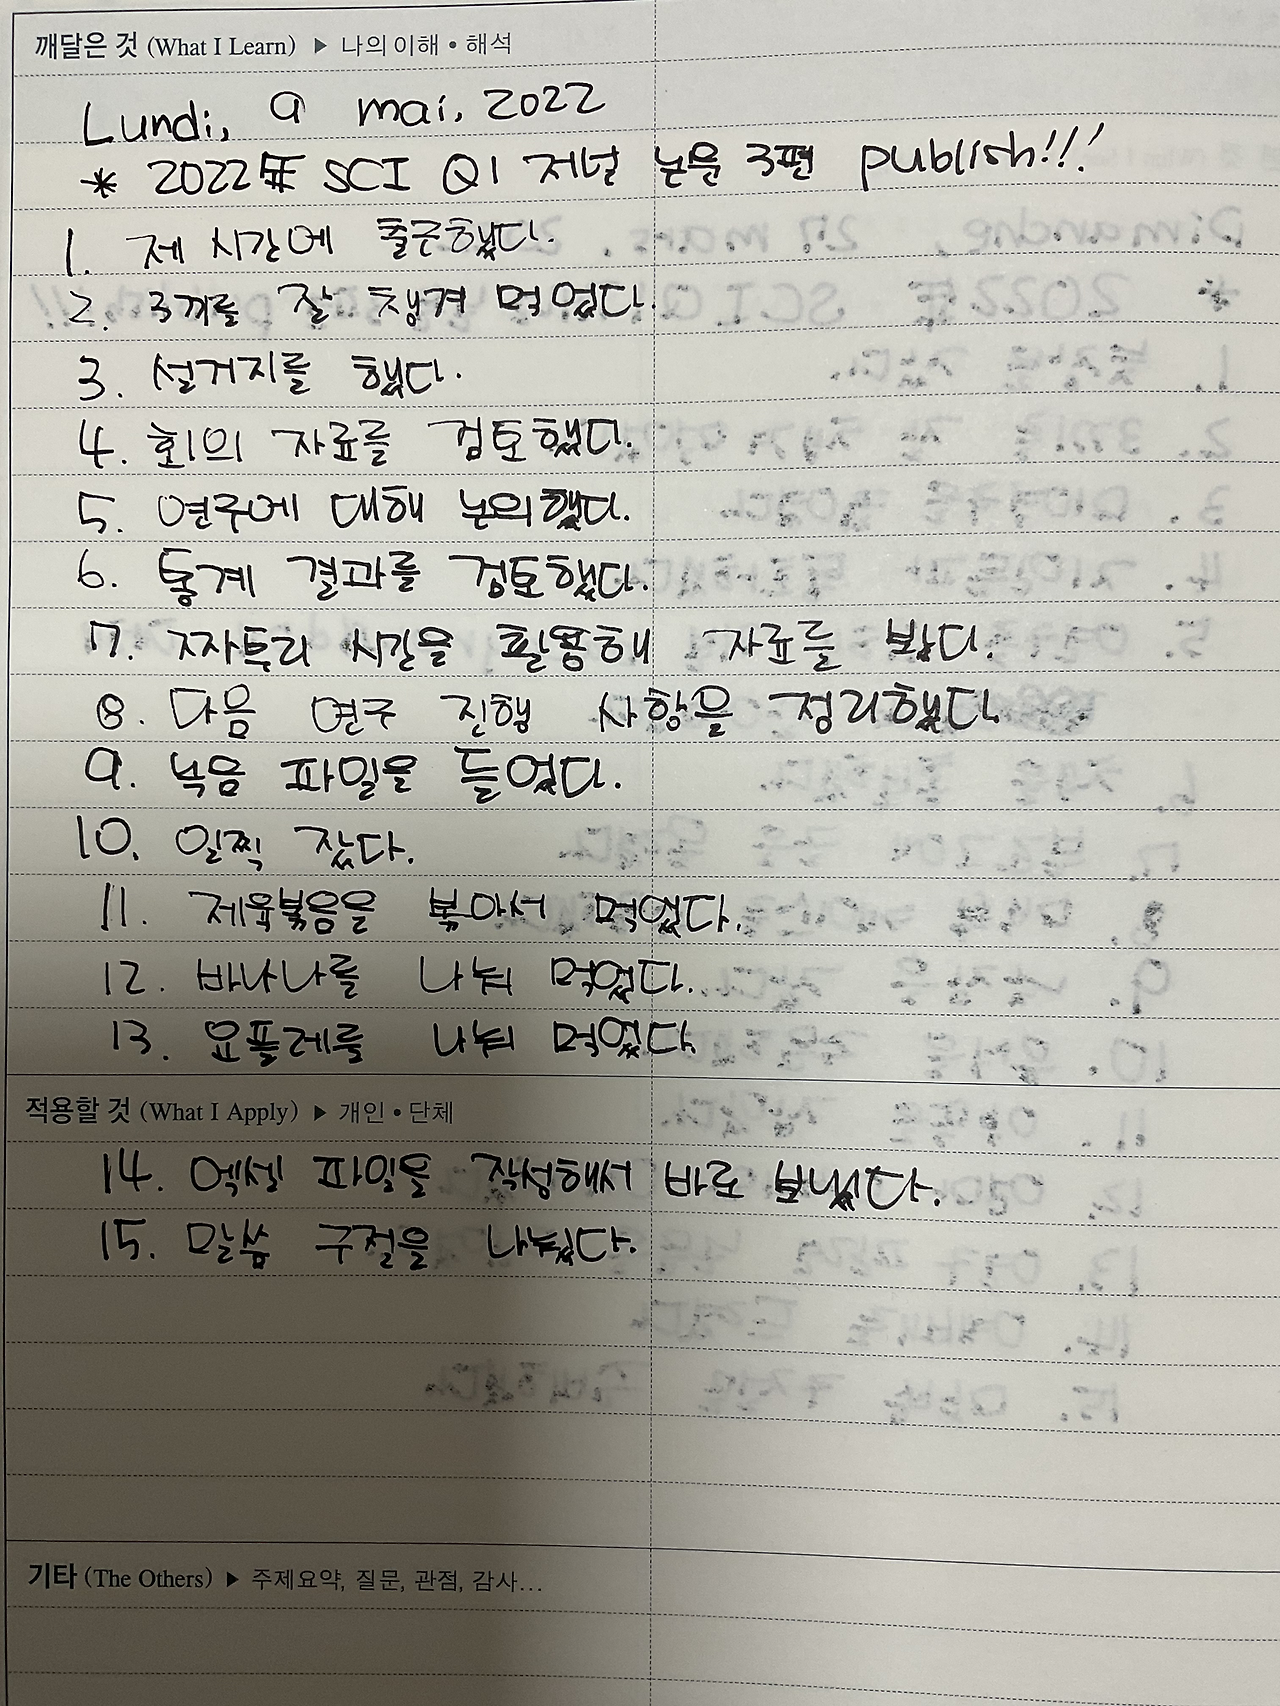 깨달은 것 (What I Learn) ▶ 나의 이해 • 해석
Lundi, 9 mai, 2022
* 2022年 SCI Q1 저널 논문 3편 publish!!!
1. 제 시간에 출근했다.
2. 3끼를 잘 챙겨 먹었다.
3. 설거지를 했다.
4. 회의 자료를 검토했다.
5. 연구에 대해 논의했다.
6. 통계 결과를 검토했다.
7. 자투리 시간을 활용해 자료를 봤다.
8. 다음 연구 진행 사항을 정리했다.
9. 녹음 파일을 들었다.
10. 일찍 잤다.
11. 제육볶음을 볶아서 먹었다.
12. 바나나를 나눠 먹었다.
13. 요플레를 나눠 먹었다.
적용할 것 (What I Apply) ▶ 개인 • 단체
14. 엑셀 파일을 작성해서 바로 보냈다.
15. 말씀 구절을 나눴다.
기타 (The Others) ▶ 주제요약, 질문, 관점, 감사...